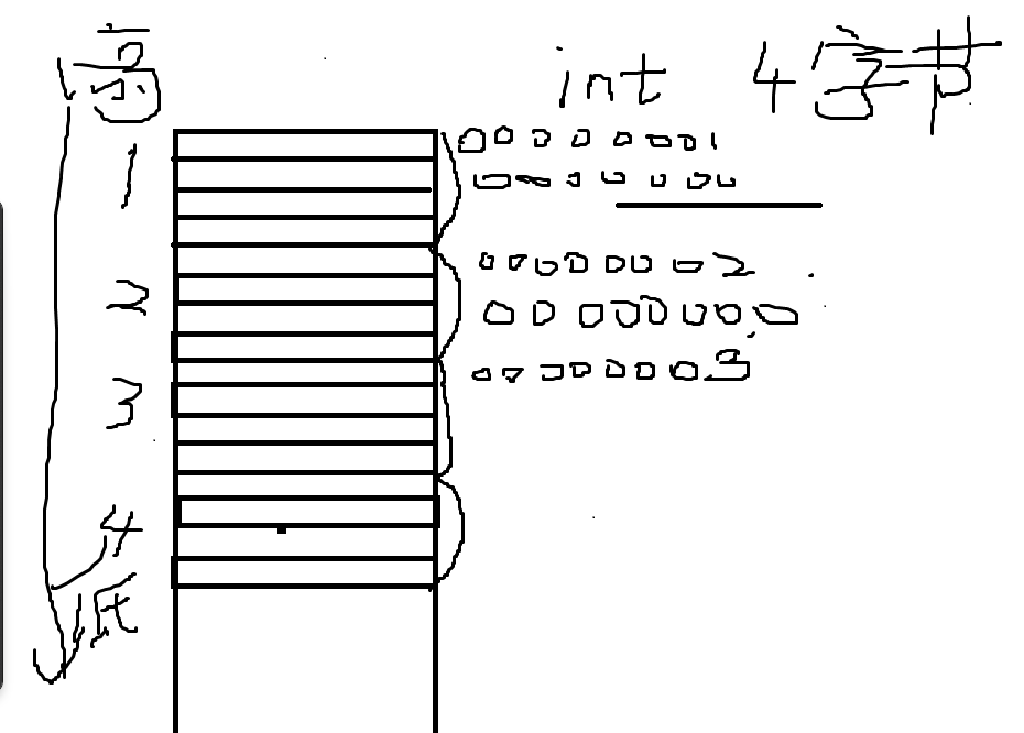 高
int 4字节
1
00000001
00000000
2
00000002
000000000
3
00000003
4
低